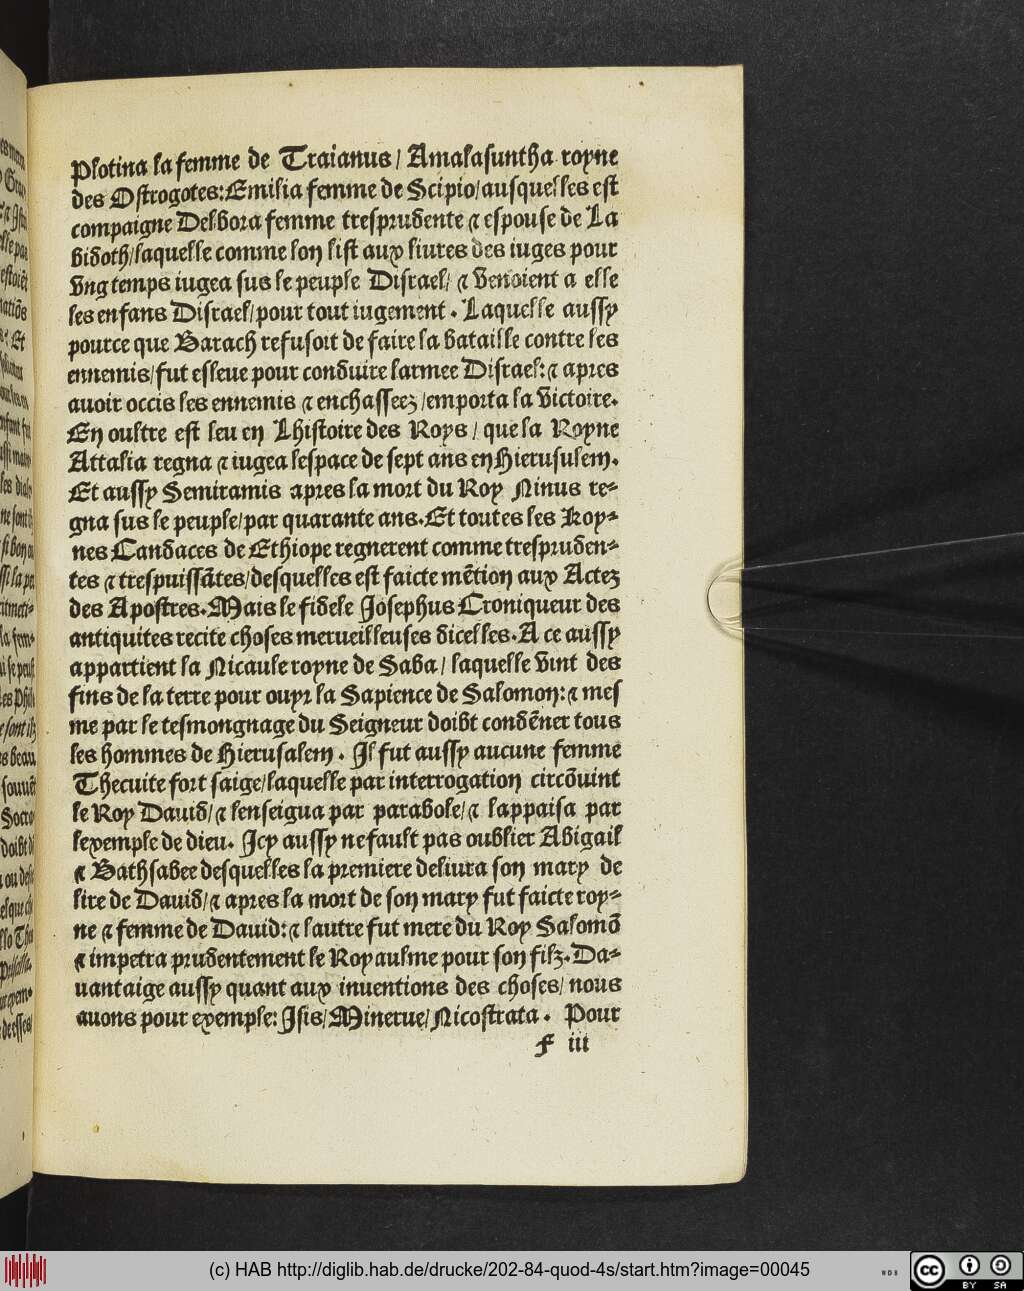 Plotina la femme de Traianus / Amalasuntha royne
des Ostrogotes: Emilia femme de Scipio/ ausquelles est
compaigne Delbora femme tresprudente ⁊ espouse de La
bidoth/ laquelle comme lon list aux liures des iuges pour
vng temps iugea sus le peuple Disrael/ ⁊ venoient a elle
les enfans Disrael/ pour tout iugement . Laquelle aussy
pource que Barach refusoit de faire la bataille contre les
ennemis/ fut esleue pour conduire larmee Disrael: ⁊ apres
auoir occis les ennemis ⁊ enchasseez/ emporta la victoire.
En oultre est leu en Lhistoire des Roys / que la Royne
Attalia regna ⁊ iugea lespace de sept ans en Hierusulem.
Et aussy Semiramis apres la mort du Roy Ninus re-
gna sus le peuple/ par quarante ans. Et toutes les Roy-
nes Candaces de Ethiope regnerent comme trespruden-
tes ⁊ trespuissātes/ desquelles est faicte mētion aux Actez
des Apostres. Mais le fidele Josephus Croniqueur des
antiquites recite choses merueilleuses dicelles. A ce aussy
appartient la Nicaule royne de Saba / laquelle vint des
fins de la terre pour ouyr la Sapience de Salomon: ⁊ mes
me par le tesmongnage du Seigneur doibt condēner tous
les hommes de Hierusalem . Jl fut aussy aucune femme
Thecuite fort saige/ laquelle par interrogation circōuint
le Roy Dauid/ ⁊ lenseigua par parabole/ ⁊ lappaisa par
lexemple de dieu. Jcy aussy ne fault pas oublier Abigail
⁊ Bathsabee desquelles la premiere deliura son mary de
lire de Dauid/ ⁊ apres la mort de son mary fut faicte roy-
ne ⁊ femme de Dauid: ⁊ lautre fut mere du Roy Salomō
⁊ impetra prudentement le Royaulme pour son filz. Da-
uantaige aussy quant aux inuentions des choses/ nous
auons pour exemple: Jsis/ Minerue/ Nicostrata . Pour
F iii
(c) HAB http://diglib.hab.de/drucke/202-84-quod-4s/start.htm?image=00045
cc BY SA